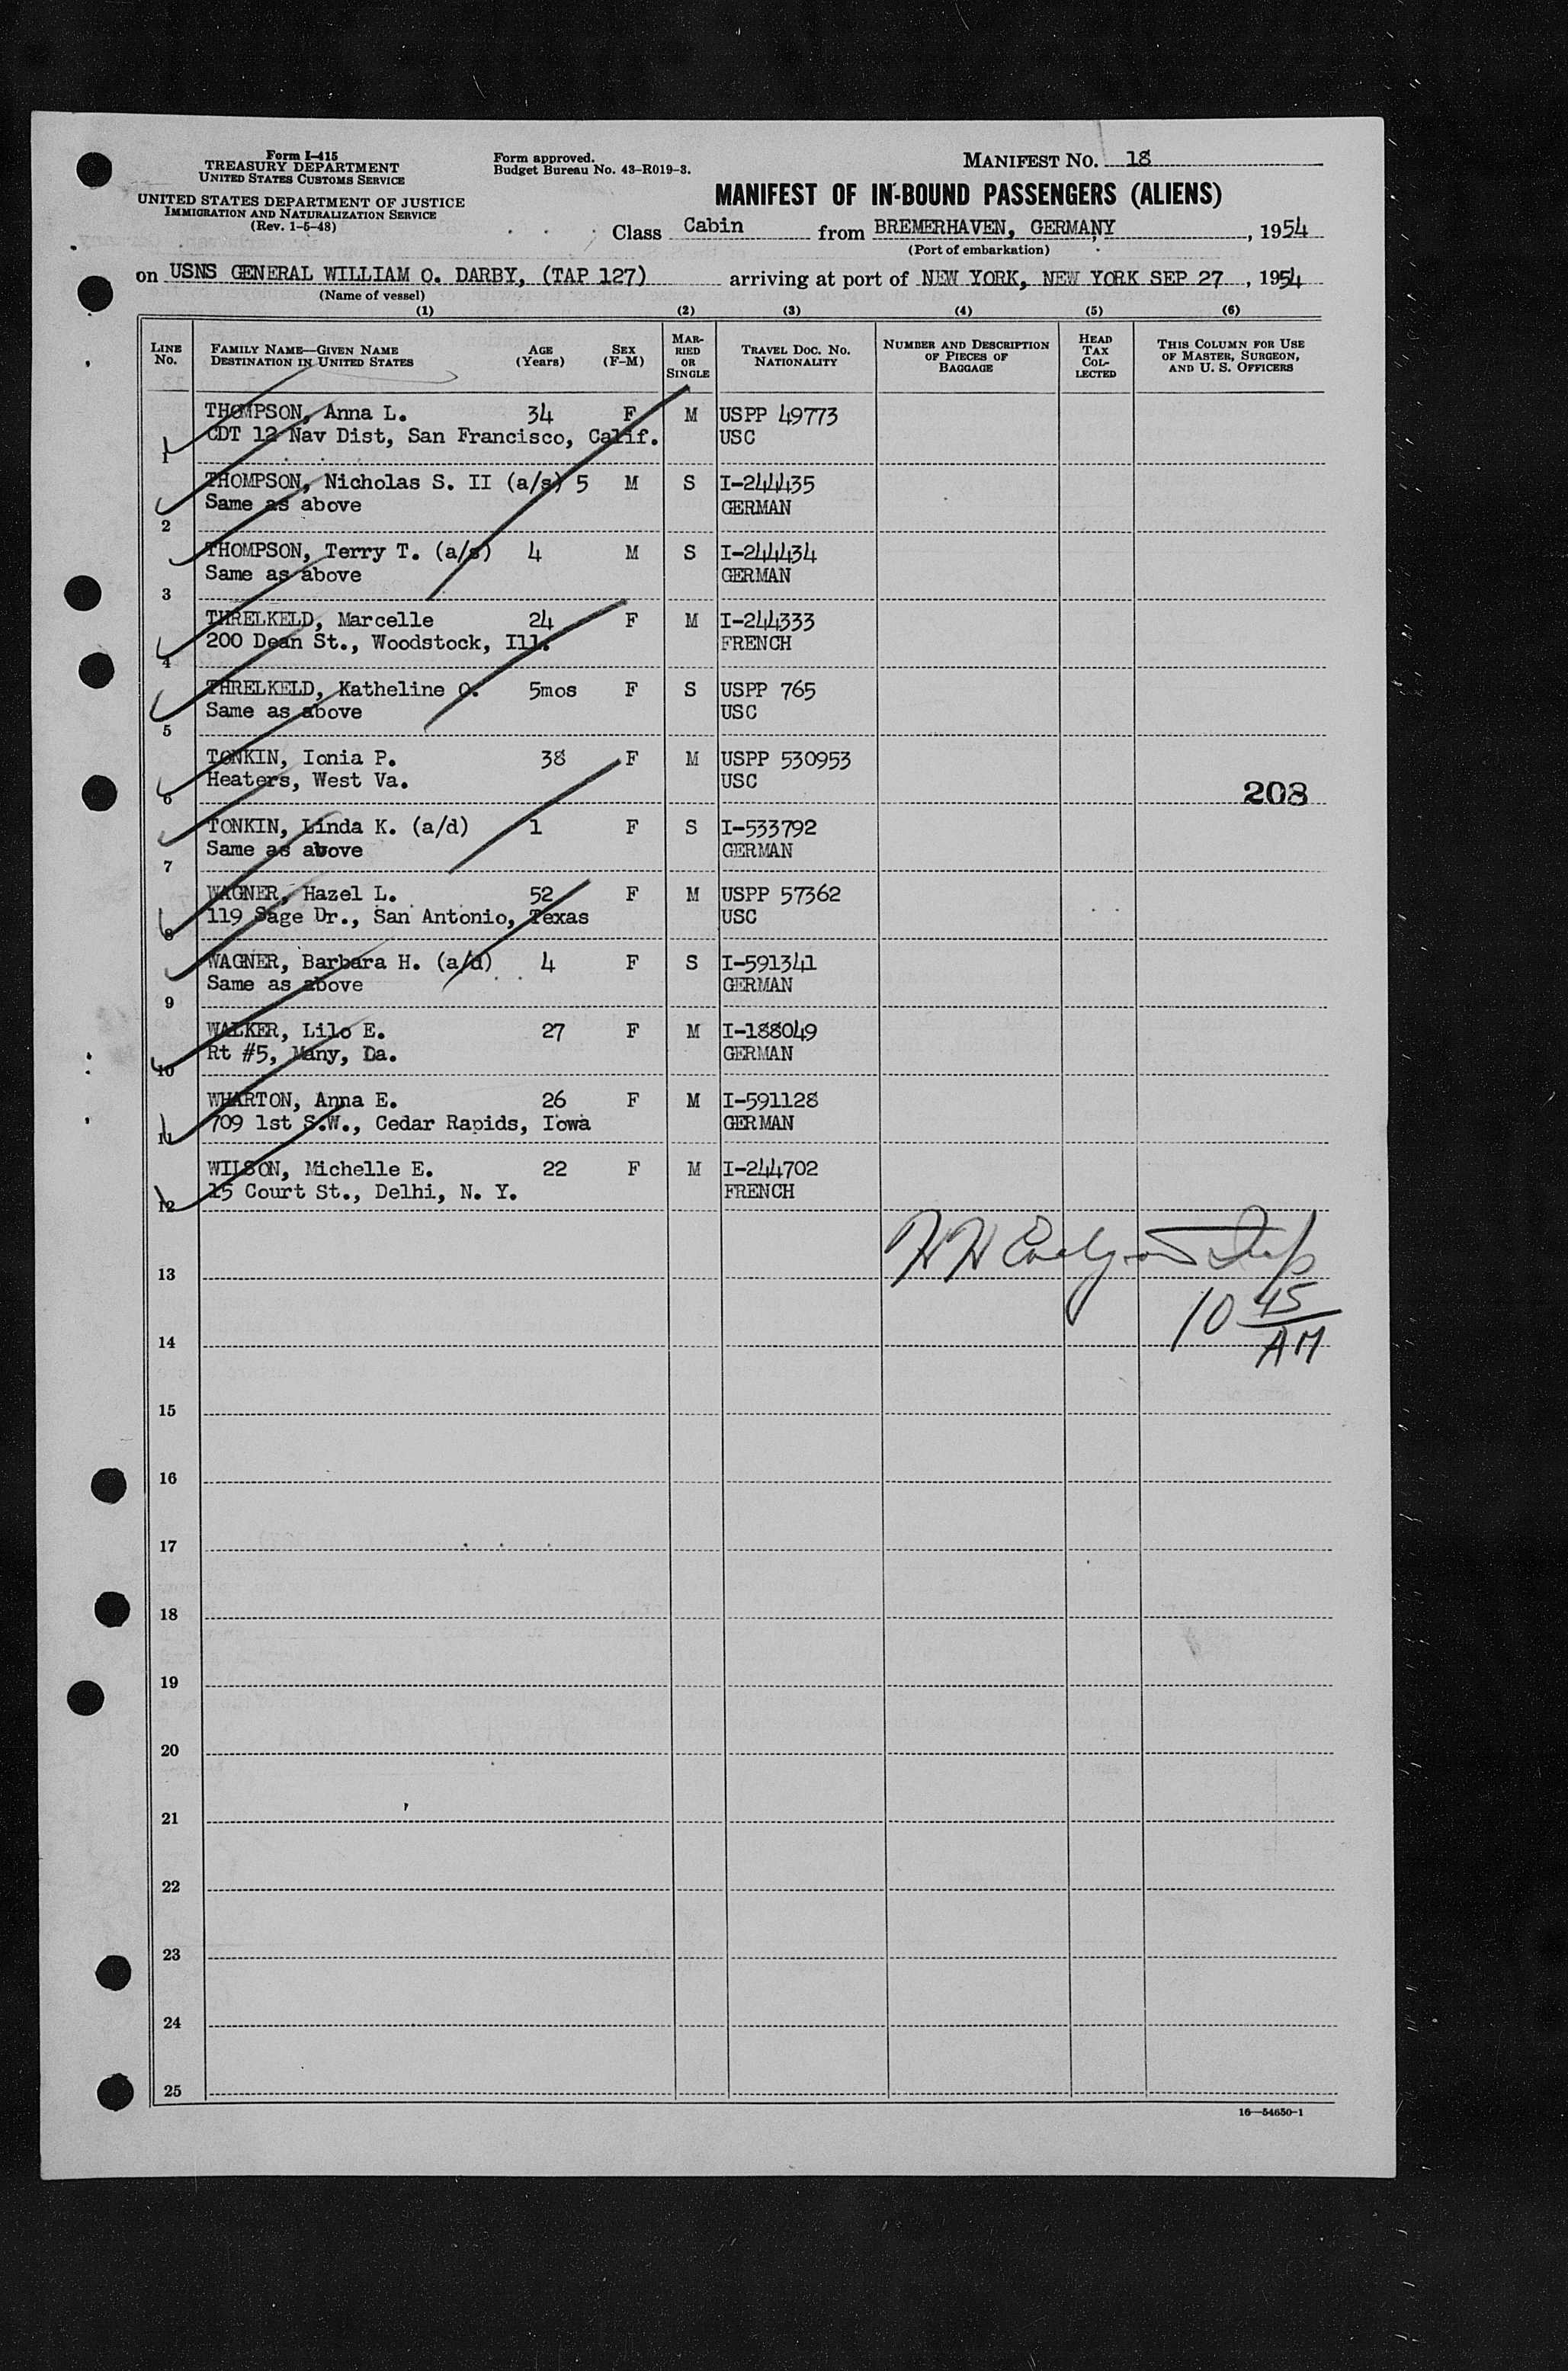 Form I-415
TREASURY DEPARTMENT
UNITED STATES CUSTOMS SERVICE
UNITED STATES DEPARTMENT OF JUSTICE
IMMIGRATION AND NATURALIZATION SERVICE
(Rev. 1-5-48)
Form approved.
Budget Bureau No. 43-R019-3.
MANIFEST NO. 18
MANIFEST OF IN-BOUND PASSENGERS (ALIENS)
Class Cabin from BREMERHAVEN, GERMANY, 1954
(Port of embarkation)
on USNS GENERAL WILLIAM O. DARBY, (TAP 127) arriving at port of NEW YORK, NEW YORK SEP 27, 1954
(Name of vessel)
(1) (2) (3) (4) (5) (6)
LINE No. FAMILY NAME—GIVEN NAME DESTINATION IN UNITED STATES AGE (Years) SEX (F-M) MARRIED OR SINGLE TRAVEL DOC. NO. NATIONALITY NUMBER AND DESCRIPTION OF PIECES OF BAGGAGE HEAD TAX COLLECTED THIS COLUMN FOR USE OF MASTER, SURGEON, AND U. S. OFFICERS
THOMPSON, Anna L. 34 F M USPP 49773
1 CDT 12 Nav Dist, San Francisco, Calif. USC
THOMPSON, Nicholas S. II (a/s) 5 M S I-244435
2 Same as above GERMAN
THOMPSON, Terry T. (a/s) 4 M S I-244434
3 Same as above GERMAN
THRELKELD, Marcelle 24 F M I-244333
4 200 Dean St., Woodstock, Ill. FRENCH
THRELKELD, Katheline O. 5mos F S USPP 765
5 Same as above USC
TONKIN, Ionia P. 38 F M USPP 530953
6 Heaters, West Va. USC
208
TONKIN, Linda K. (a/d) 1 F S I-533792
7 Same as above GERMAN
WAGNER, Hazel L. 52 F M USPP 57362
8 119 Sage Dr., San Antonio, Texas USC
WAGNER, Barbara H. (a/d) 4 F S I-591341
9 Same as above GERMAN
WALKER, Lilo E. 27 F M I-188049
10 Rt #5, Many, Da. GERMAN
WHARTON, Anna E. 26 F M I-591128
11 709 1st S.W., Cedar Rapids, Iowa GERMAN
WILSON, Michelle E. 22 F M I-244702
12 15 Court St., Delhi, N. Y. FRENCH
13
10 45 AM
14
15
16
17
18
19
20
21
22
23
24
25
16—54650-1